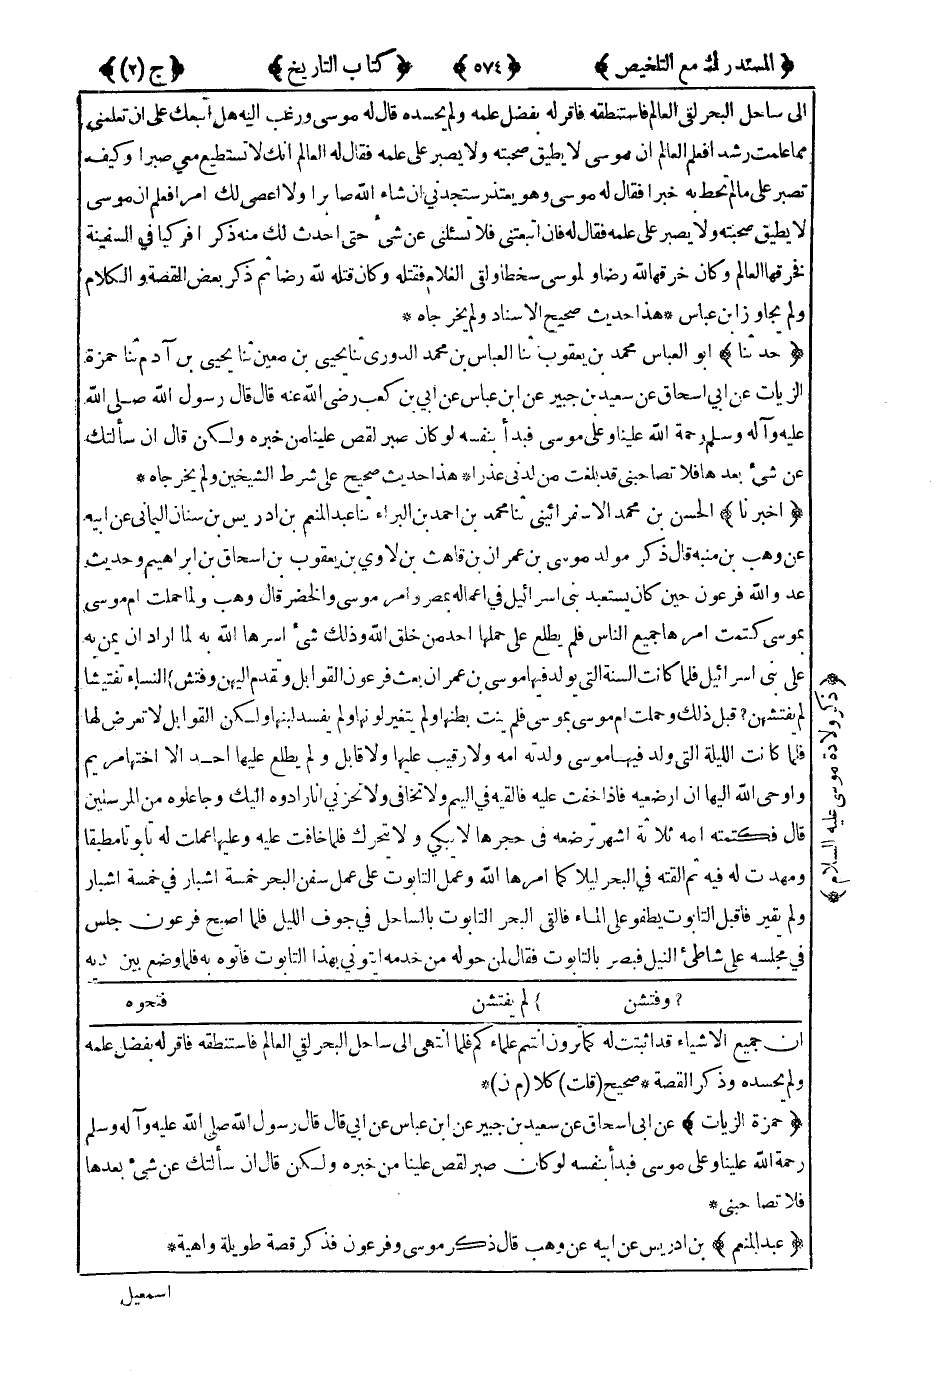 ﴿ المستدرك مع التلخيص ﴾ ﴿ ٥٧٤ ﴾ ﴿ كتاب التاريخ ﴾ ﴿ ج (٢) ﴾
الى ساحل البحر لقى العالم فاستنطقه فاقر له بفضل علمه ولم يحسده قال له موسى ورغب اليه هل أتبعك على ان تعلمنى
مما علمت رشد افعلم العالم ان موسى لا يطيق صحبته ولا يصبر على علمه فقال له العالم انك لا تستطيع معي صبرا وكيف
تصبر على مالم تحط به خبرا فقال له موسى وهو يعتذر ستجدني ان شاء الله صابرا ولا اعصى لك امرا فعلم ان موسى
لا يطيق صحبته ولا يصبر على علمه فقال له فان اتبعتنى فلا تسئلنى عن شئ حتى احدث لك منه ذكرا فركبا في السفينة
فخرقها العالم وكان خرقها لله رضا ولموسى سخطا ولقى الغلام فقتله وكان قتله لله رضا ثم ذكر بعض القصة و الكلام
ولم يجاوز ابن عباس * هذا حديث صحيح الاسناد ولم يخرجاه *
﴿ حدثنا ﴾ ابو العباس محمد بن يعقوب ثنا العباس بن محمد الدورى ثنا يحيى بن معين ثنا يحيى بن آدم ثنا حمزة
الزيات عن ابي اسحاق عن سعيد بن جبير عن ابن عباس عن ابي بن كعب رضى الله عنه قال قال رسول الله صلى الله
عليه وآله وسلم رحمة الله علينا وعلى موسى فبدأ بنفسه لو كان صبر لقص علينا من خبره ولكن قال ان سألتك
عن شئ بعدها فلا تصاحبنى قد بلغت من لدنى عذرا * هذا حديث صحيح على شرط الشيخين ولم يخرجاه *
﴿ اخبرنا ﴾ الحسن بن محمد الاسفرائينى ثنا محمد بن احمد بن البراء ثنا عبد المنعم بن ادريس بن سنان اليمانى عن ابيه
عن وهب بن منبه قال ذكر مولد موسى بن عمران بن قاهث بن لاوي بن يعقوب بن اسحاق بن ابراهيم وحديث
عدو الله فرعون حين كان يستعبد بنى اسرائيل في اعماله بمصر وامر موسى والخضر قال وهب ولما حملت ام موسى
بموسى كتمت امرها جميع الناس فلم يطلع على حملها احد من خلق الله وذلك شئ اسرها الله به لما اراد ان يمن به
على بنى اسرائيل فلما كانت السنة التى يولد فيها موسى بن عمران بعث فرعون القوابل وتقدم اليهن وفتش} النساء تفتيشا
لم يفتشهن? قبل ذلك وحملت ام موسى بموسى فلم ينت بطنها ولم يتغير لونها ولم يفسد لبنها ولكن القوابل لا تعرض لها
فلما كانت الليلة التى ولد فيها موسى ولدته امه ولا رقيب عليها ولا قابل و لم يطلع عليها احد الا اختها مريم
واوحى الله اليها ان ارضعيه فاذا خفت عليه فالقيه في اليم ولا تخافى ولا تحزنى انا رادوه اليك وجاعلوه من المرسلين
قال فكتمته امه ثلاثة اشهر ترضعه فى حجرها لا يبكي و لا يتحرك فلما خافت عليه وعليها عملت له تابوتا مطبقا
ومهدت له فيه ثم القته في البحر ليلا كما امرها الله وعمل التابوت على عمل سفن البحر خمسة اشبار في خمسة اشبار
ولم يقير فاقبل التابوت يطفو على الماء فالقى البحر التابوت بالساحل في جوف الليل فلما اصبح فرعون جلس
في مجلسه على شاطئ النيل فبصر بالتابوت فقال لمن حوله من خدمه ايتوني بهذا التابوت فاتوه به فلما وضع بين يديه
﴿ ذكر ولادة موسى عليه السلام ﴾
? وفتشن } لم يفتشن فتحوه
ان جميع الاشياء قد اثبتت له كما ترون انتم علماءكم فلما انتهى الى ساحل البحر لقى العالم فاستنطقه فاقر له بفضل علمه
ولم يحسده وذكر القصة * صحيح (قلت) كلا (م ن) *
﴿ حمزة الزيات ﴾ عن ابى اسحاق عن سعيد بن جبير عن ابن عباس عن ابي قال قال رسول الله صلى الله عليه وآله وسلم
رحمة الله علينا وعلى موسى فبدأ بنفسه لو كان صبر لقص علينا من خبره ولكن قال ان سألتك عن شئ بعدها
فلا تصاحبنى *
﴿ عبد المنعم ﴾ بن ادريس عن ابيه عن وهب قال ذكر موسى وفرعون فذكر قصة طويلة واهية *
اسمعيل